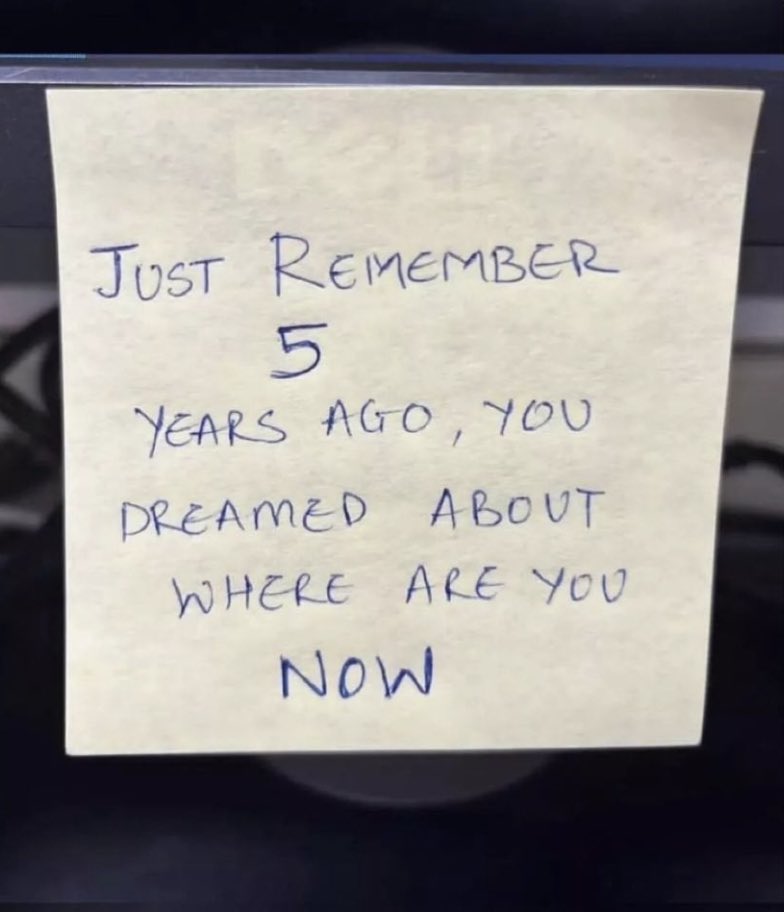 JUST REMEMBER
5
YEARS AGO, YOU
DREAMED ABOUT
WHERE ARE YOU
NOW